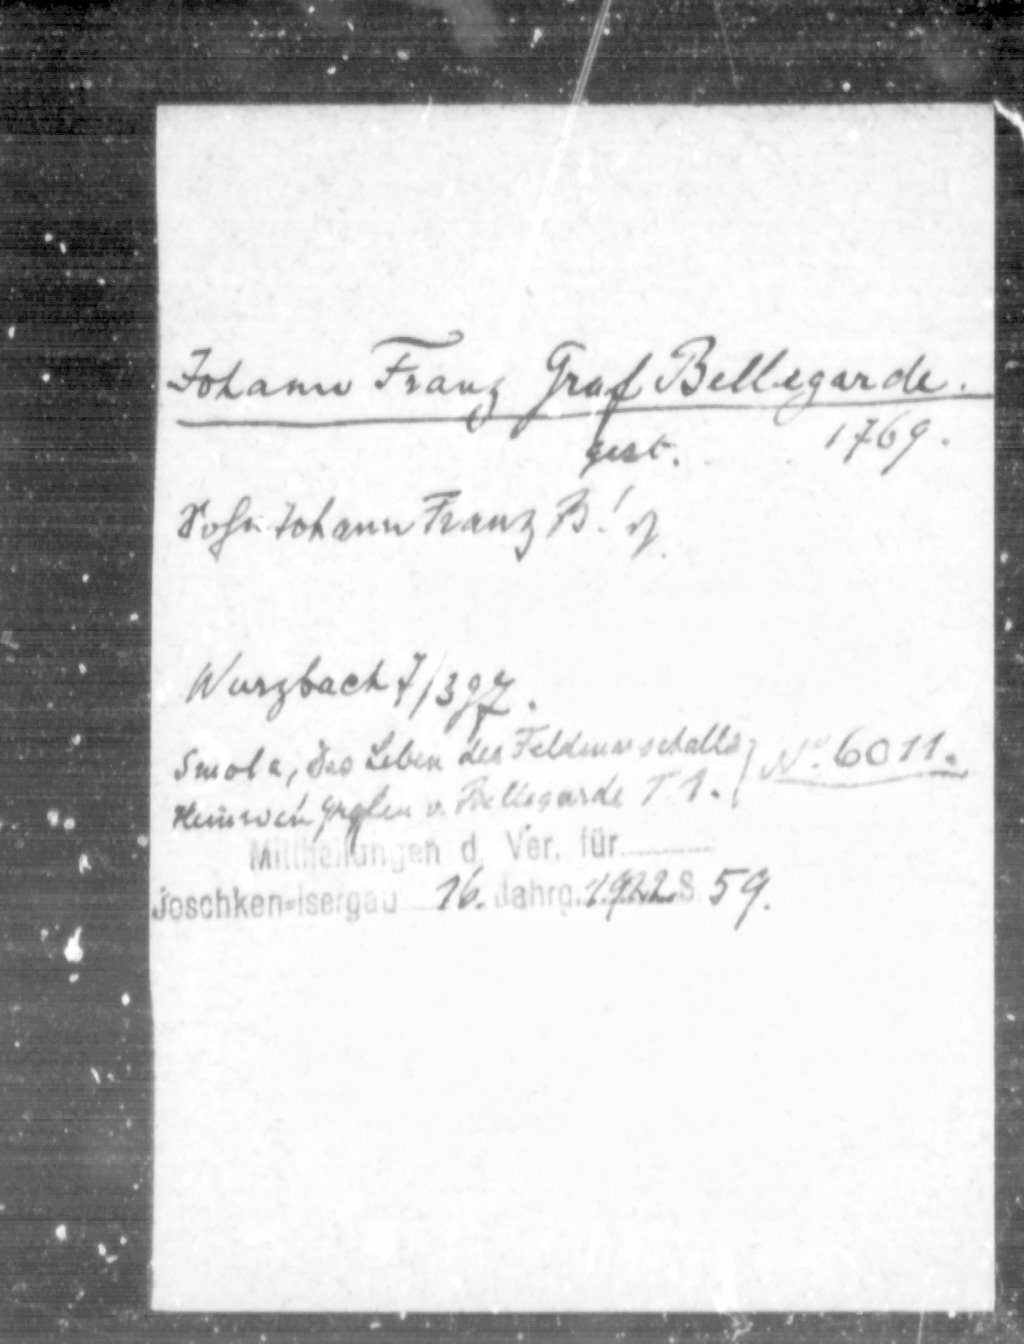 Johann Franz Graf Bellegarde.
gest. 1769.
Sohn Johann Franz B.
Wurzbach
Smola, das Leben des Feldmarschalls
Heinrich Grafen v. Bellegarde T. 1. No. 6011.
Mittheilungen d. Ver. für
Joschken-Isergau 16. Jahrg. 1922 S. 59.